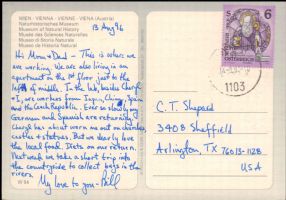 WIEN · VIENNA · VIENNE · VIENA (Austria)
Naturhistorisches Museum
Museum of Natural History
Musée des Sciences Naturelles
Museo di Storia Naturale
Museo de Historia Natural
13 Aug 96
Hi Mom & Dad - This is where we
are working. We are also living in an
apartment on the 1st floor just to the
left of middle. In the lab, besides Cheryl
+ I, are workers from Japan, China, Spain
and the Czech Republic. Ever so slowly my
German and Spanish are returning.
Cheryl has about worn me out on churches,
castles + statues. But we dearly love
the local food. Diets on our return.
Next week we take a short trip into
the countryside to collect bugs in the
rivers.
My love to you - Bill
W 54
6
REPUBLIK
ÖSTERREICH
1103
C. T. Shepard
3408 Sheffield
Arlington, TX 76013-1128
USA